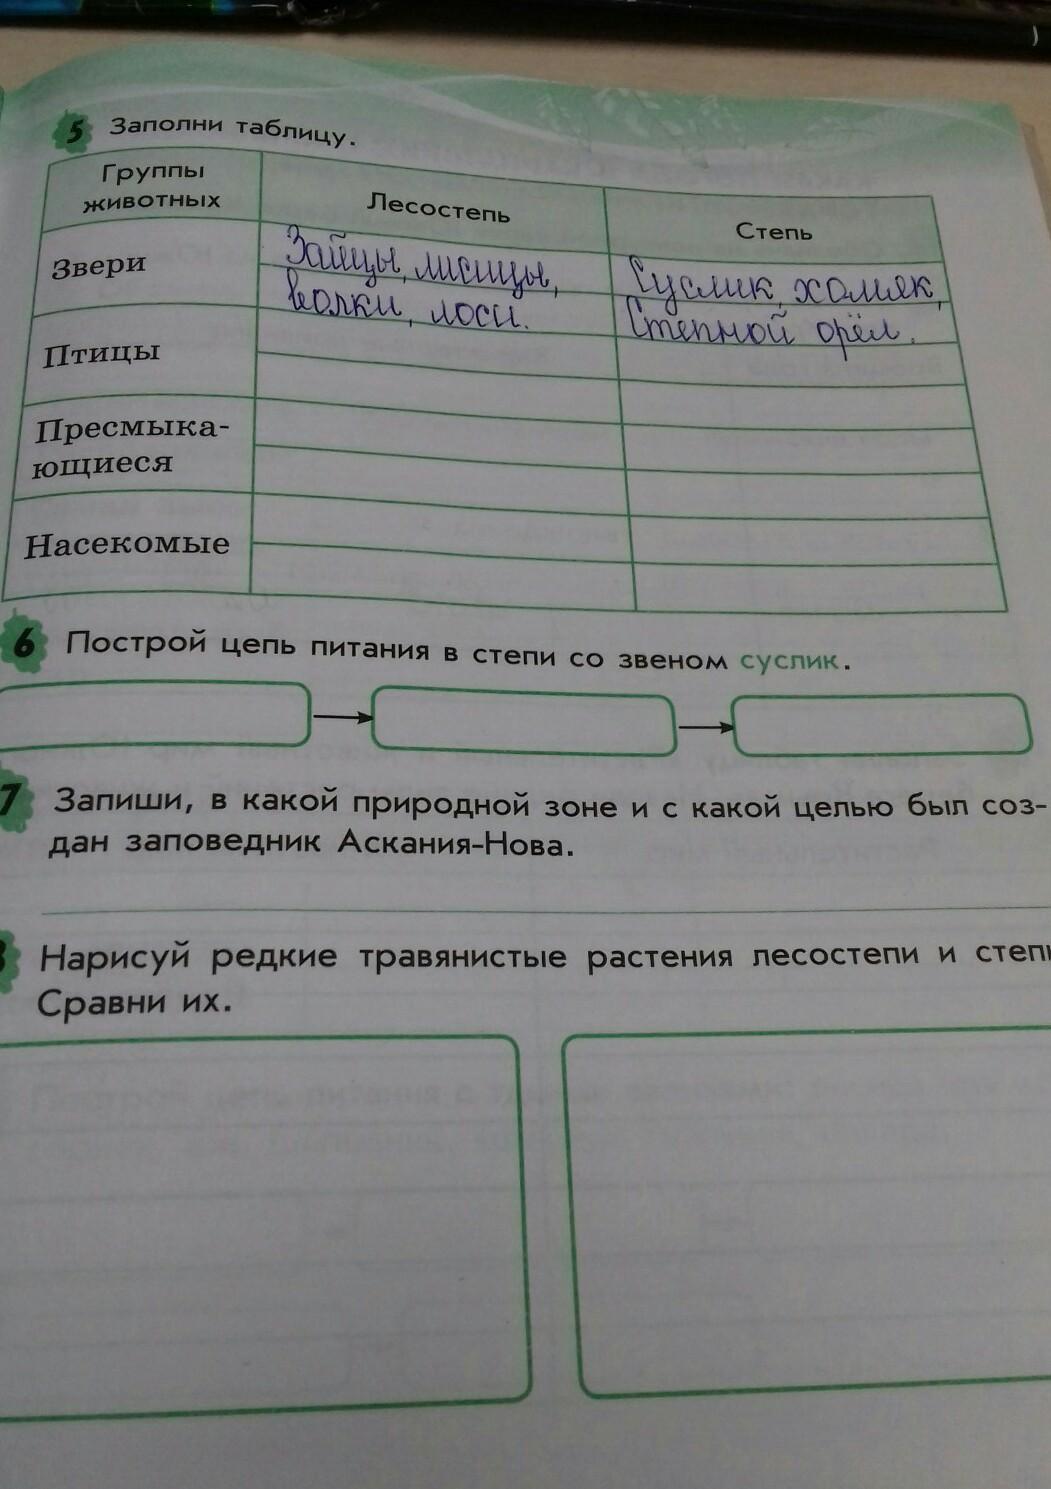 5 Заполни таблицу.
Группы
животных
Лесостепь
Степь
Звери
Зайцы, лисицы,
волки, лоси.
Суслик, хомяк,
Степной орёл.
Птицы
Пресмыка-
ющиеся
Насекомые
6 Построй цепь питания в степи со звеном суслик.
7 Запиши, в какой природной зоне и с какой целью был соз-
дан заповедник Аскания-Нова.
Нарисуй редкие травянистые растения лесостепи и степи
Сравни их.